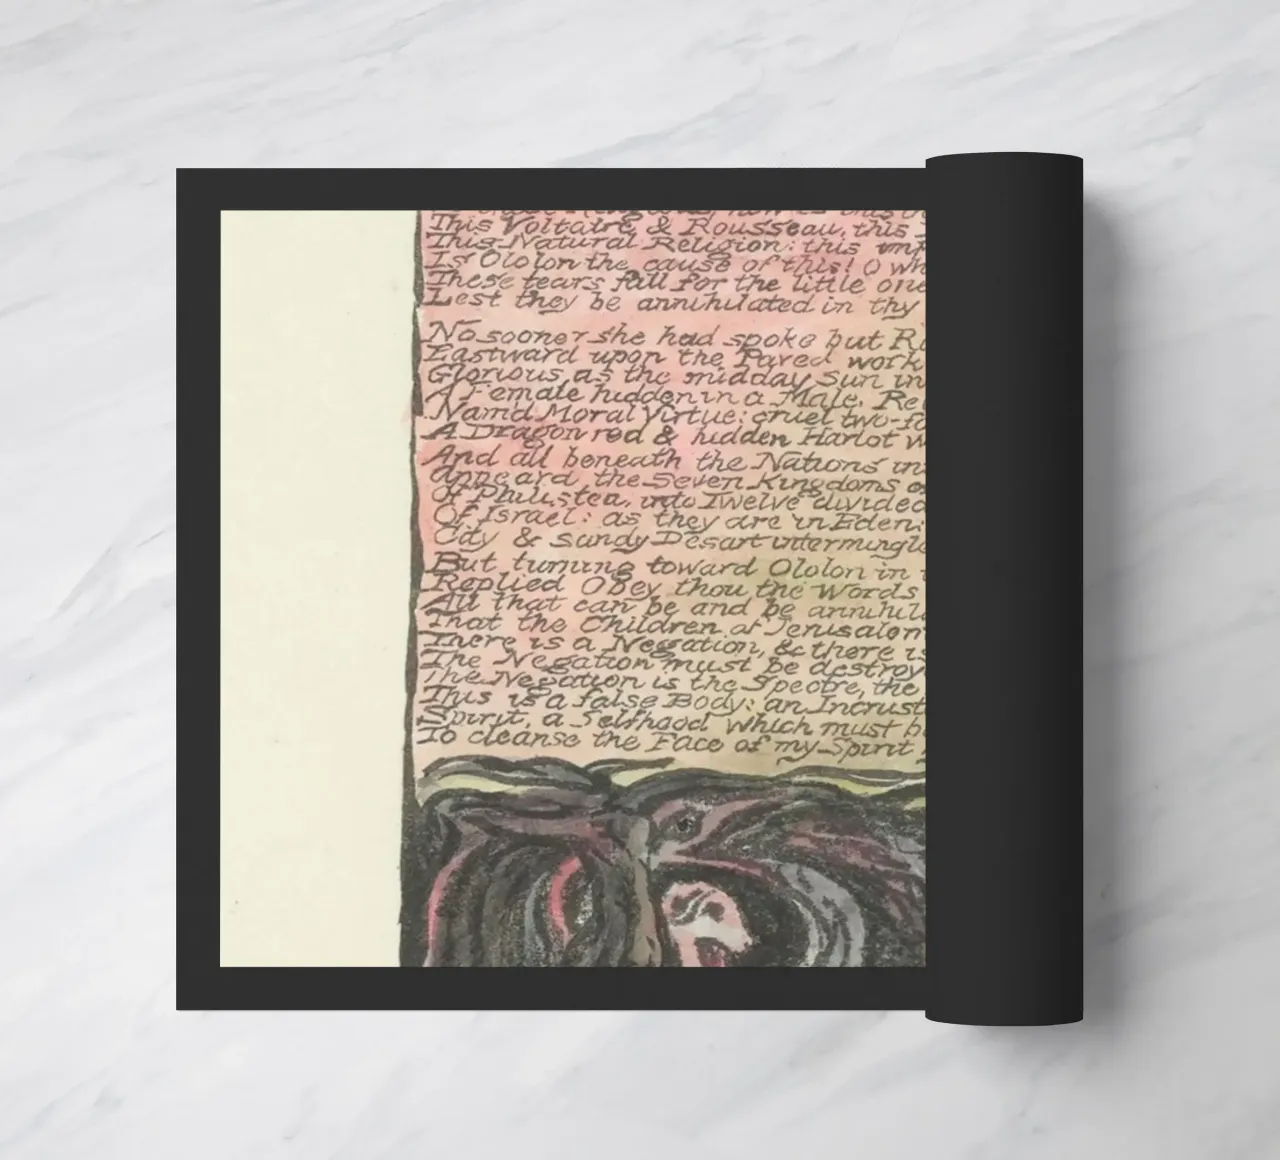 This Voltaire & Rousseau, this
This Natural Religion: this
Is Ololon the cause of this! O
These tears fall for the little one
Lest they be annihilated in thy
No sooner she had spoke but
Eastward upon the Paved work
Glorious as the midday Sun in
A Female hidden in a Male, Re
Namd Moral Virtue: cruel two-fo
A Dragon red & hidden Harlot w
And all beneath the Nations in
Appeard the Seven Kingdoms o
Of Philistea, into Twelve divided
Of Israel: as they are in Eden:
City & sandy Desart intermingle
But turning toward Ololon in
Replied Obey thou the Words
All that can be and be annihil
That the Children of Jerusalem
There is a Negation, & there is
The Negation must be destroy
The Negation is the Spectre, the
This is a false Body: an Incrust
Spirit, a Selfhood which must b
To cleanse the Face of my Spirit